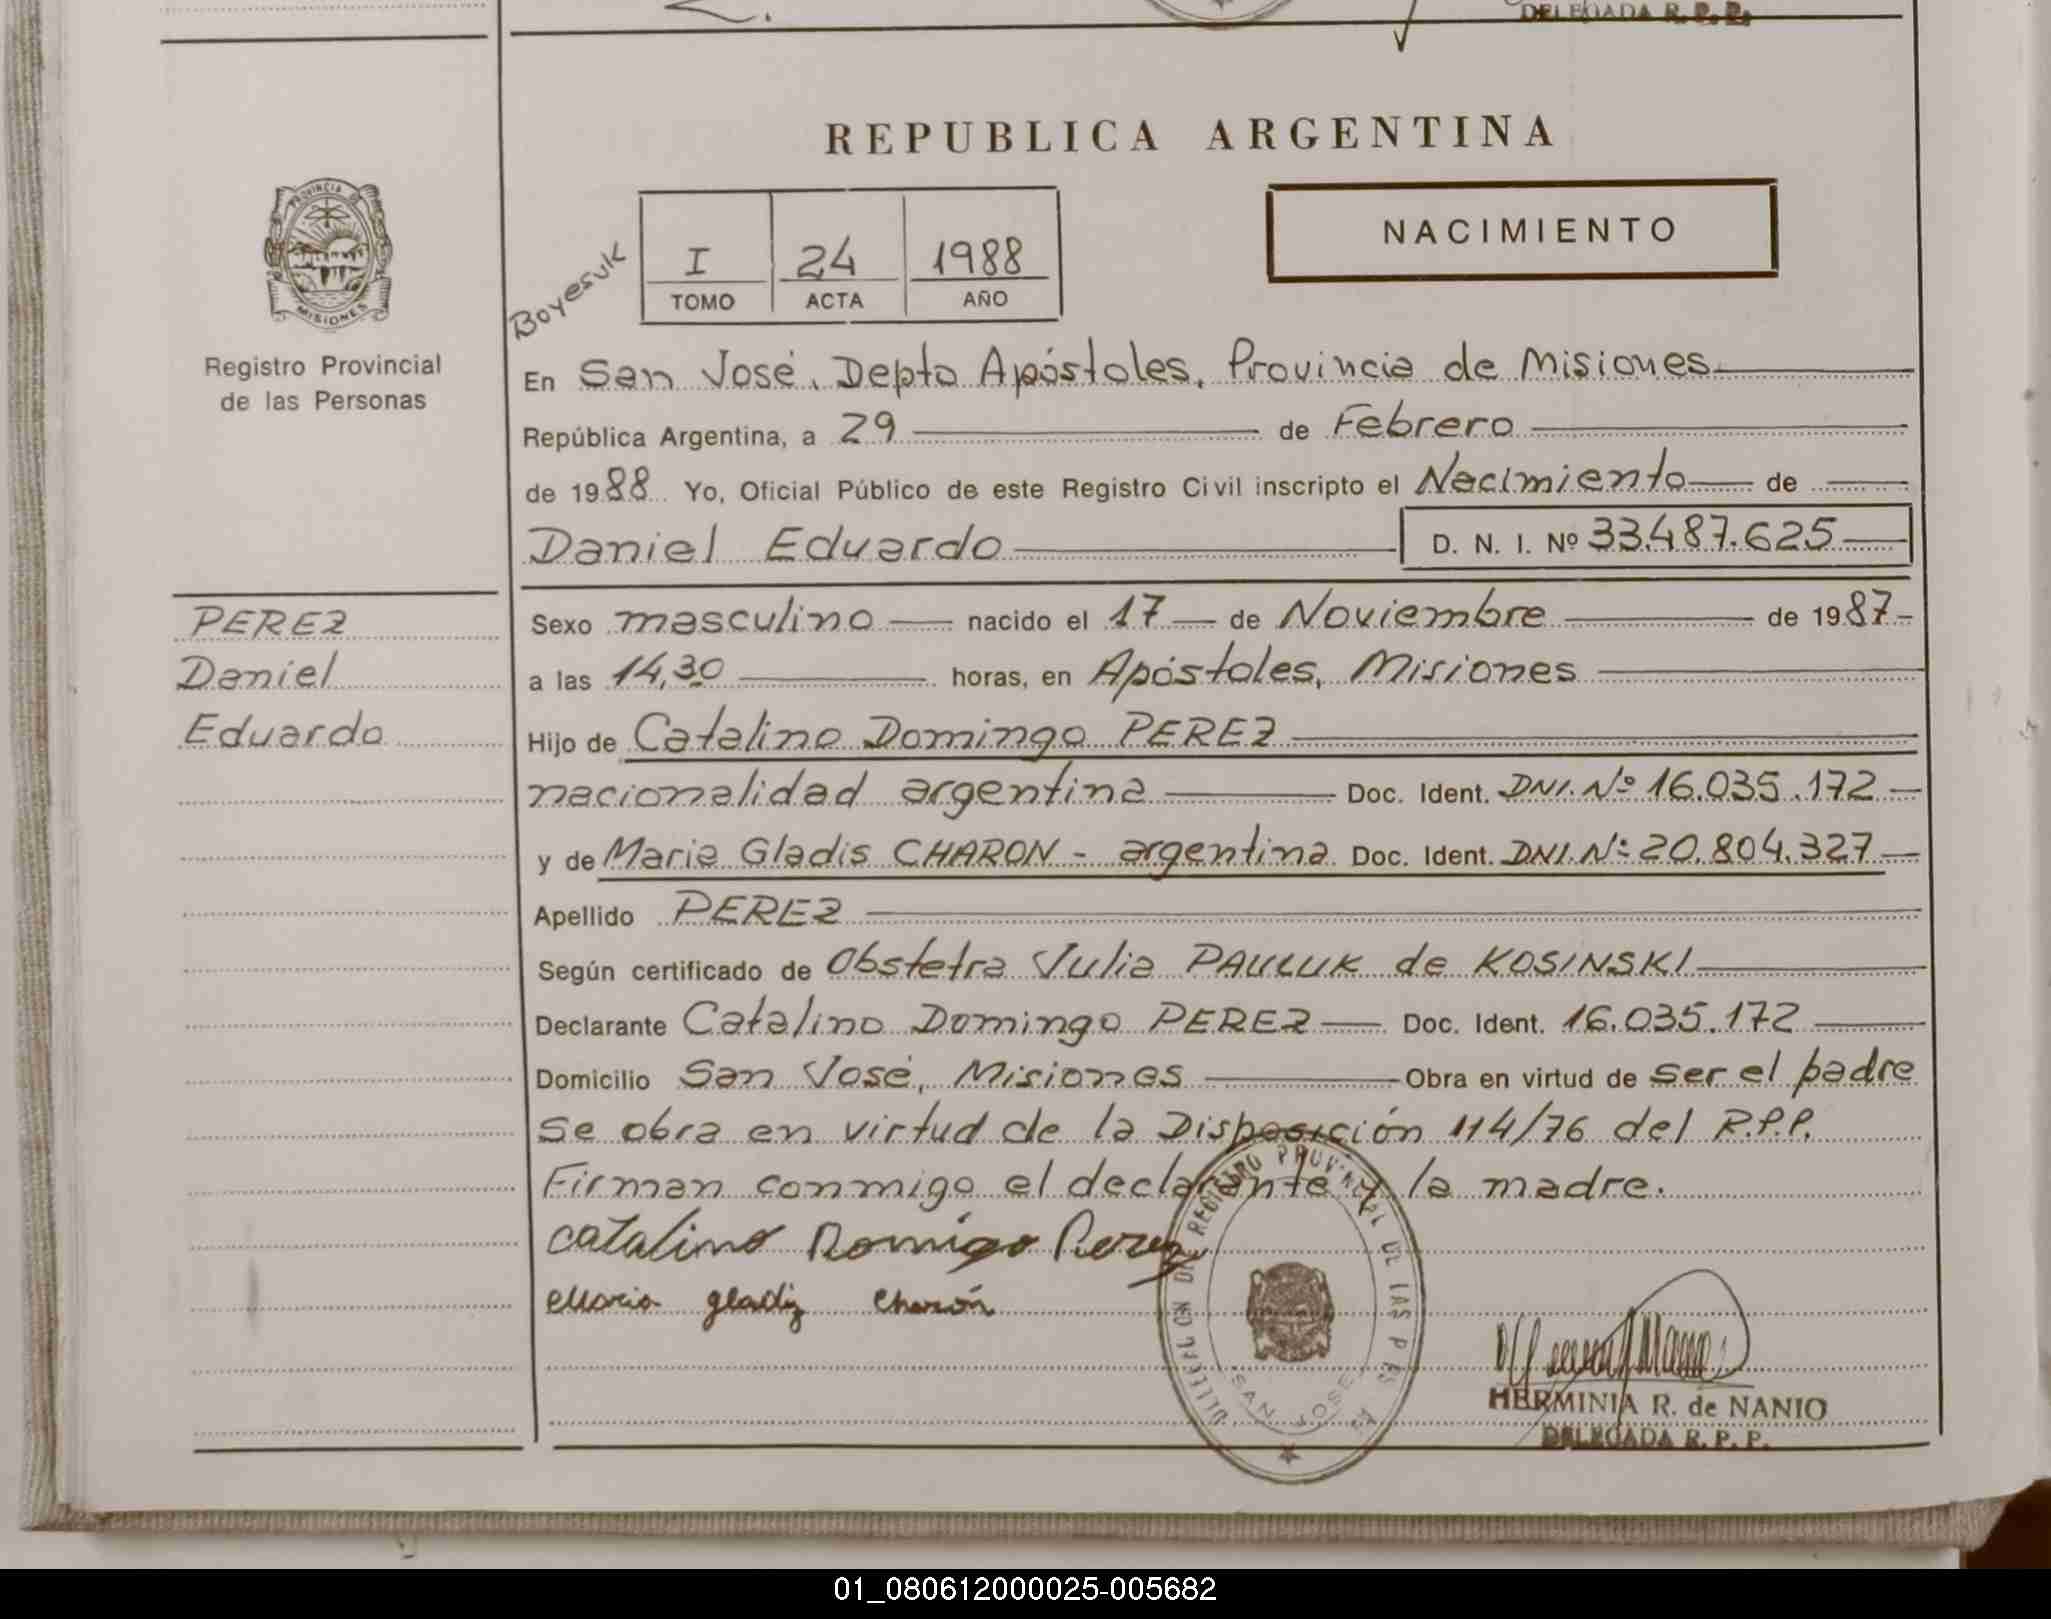 DELEGADA R. P. P.
REPUBLICA ARGENTINA
PROVINCIA DE
MISIONES
Registro Provincial
de las Personas
Boyesuk
I 24 1988
TOMO ACTA AÑO
NACIMIENTO
En San José, Depto Apóstoles, Provincia de Misiones
República Argentina, a 29 de Febrero
de 1988 Yo, Oficial Público de este Registro Civil inscripto el Nacimiento de
Daniel Eduardo D. N. I. Nº 33.487.625
PEREZ
Daniel
Eduardo
Sexo masculino nacido el 17 de Noviembre de 1987
a las 14,30 horas, en Apóstoles, Misiones
Hijo de Catalino Domingo PEREZ
nacionalidad argentina Doc. Ident. DNI. Nº 16.035.172
y de Maria Gladis CHARON - argentina Doc. Ident. DNI. Nº 20.804.327
Apellido PEREZ
Según certificado de Obstetra Julia PAULUK de KOSINSKI
Declarante Catalino Domingo PEREZ Doc. Ident. 16.035.172
Domicilio San José, Misiones Obra en virtud de ser el padre
Se obra en virtud de la Disposición 114/76 del R.P.P.
Firman conmigo el declarante y la madre.
Catalino Domigo Perez
Maria gladiz Charón
REGISTRO PROVINCIAL DE LAS PERS
SAN JOSE
HERMINIA R. de NANIO
DELEGADA R. P. P.
01_080612000025-005682